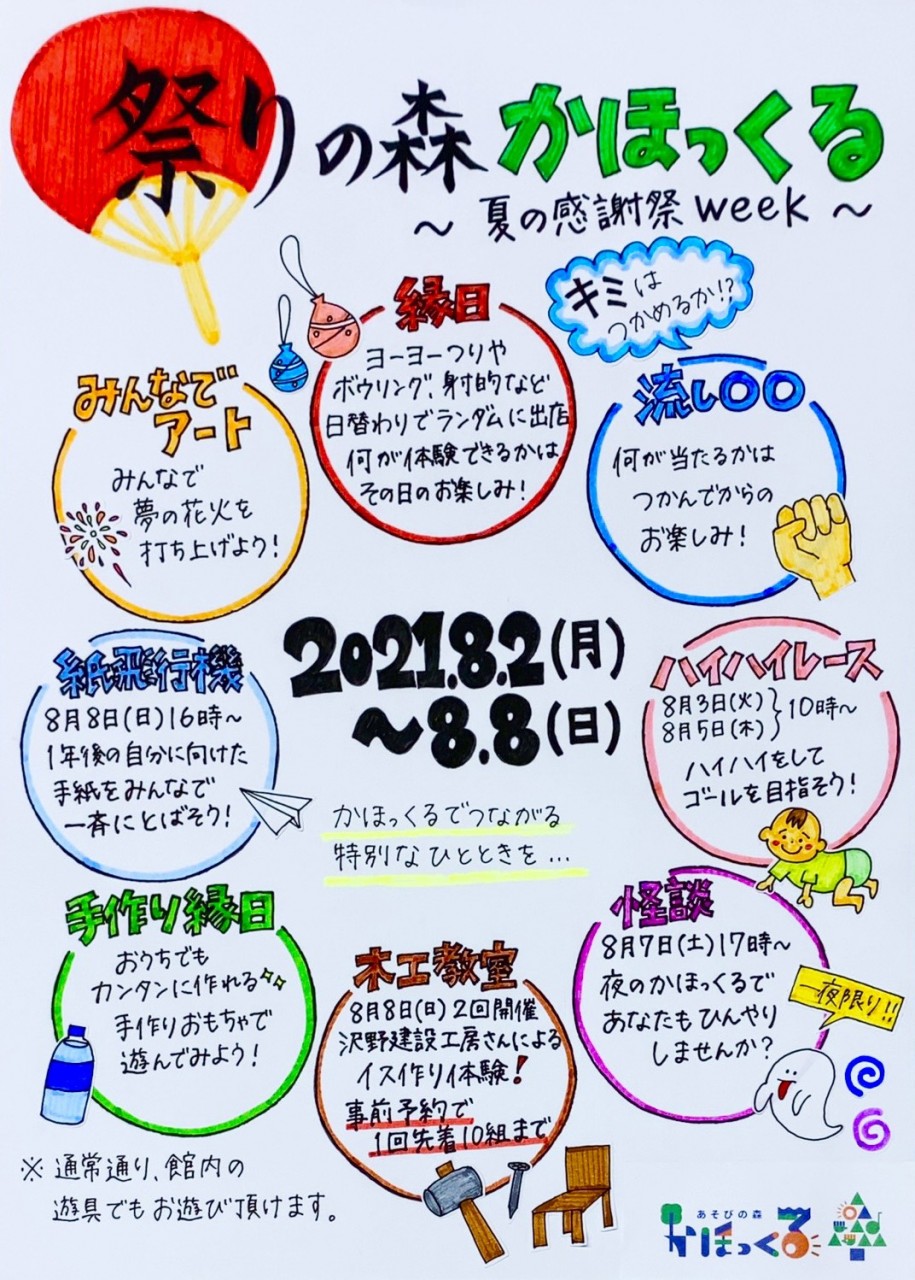 祭りの森 かほっくる
～ 夏の感謝祭 week ～
縁日
ヨーヨーつりや
ボウリング、射的など
日替わりでランダムに出店
何が体験できるかは
その日のお楽しみ!
キミは
つかめるか!?
流し〇〇
何が当たるかは
つかんでからの
お楽しみ!
みんなで
アート
みんなで
夢の花火を
打ち上げよう!
2021.8.2(月)
～8.8(日)
かほっくるでつながる
特別なひとときを...
紙飛行機
8月8日(日)16時～
1年後の自分に向けた
手紙をみんなで
一斉にとばそう!
ハイハイレース
8月3日(火)
8月5日(木)
10時～
ハイハイをして
ゴールを目指そう!
手作り縁日
おうちでも
カンタンに作れる
手作りおもちゃで
遊んでみよう!
木工教室
8月8日(日)2回開催
沢野建設工房さんによる
イス作り体験!
事前予約で
1回先着10組まで
怪談
8月7日(土)17時～
夜のかほっくるで
あなたもひんやり
しませんか?
一夜限り!!
※ 通常通り、館内の
遊具でもお遊び頂けます。
あそびの森
かほっくる